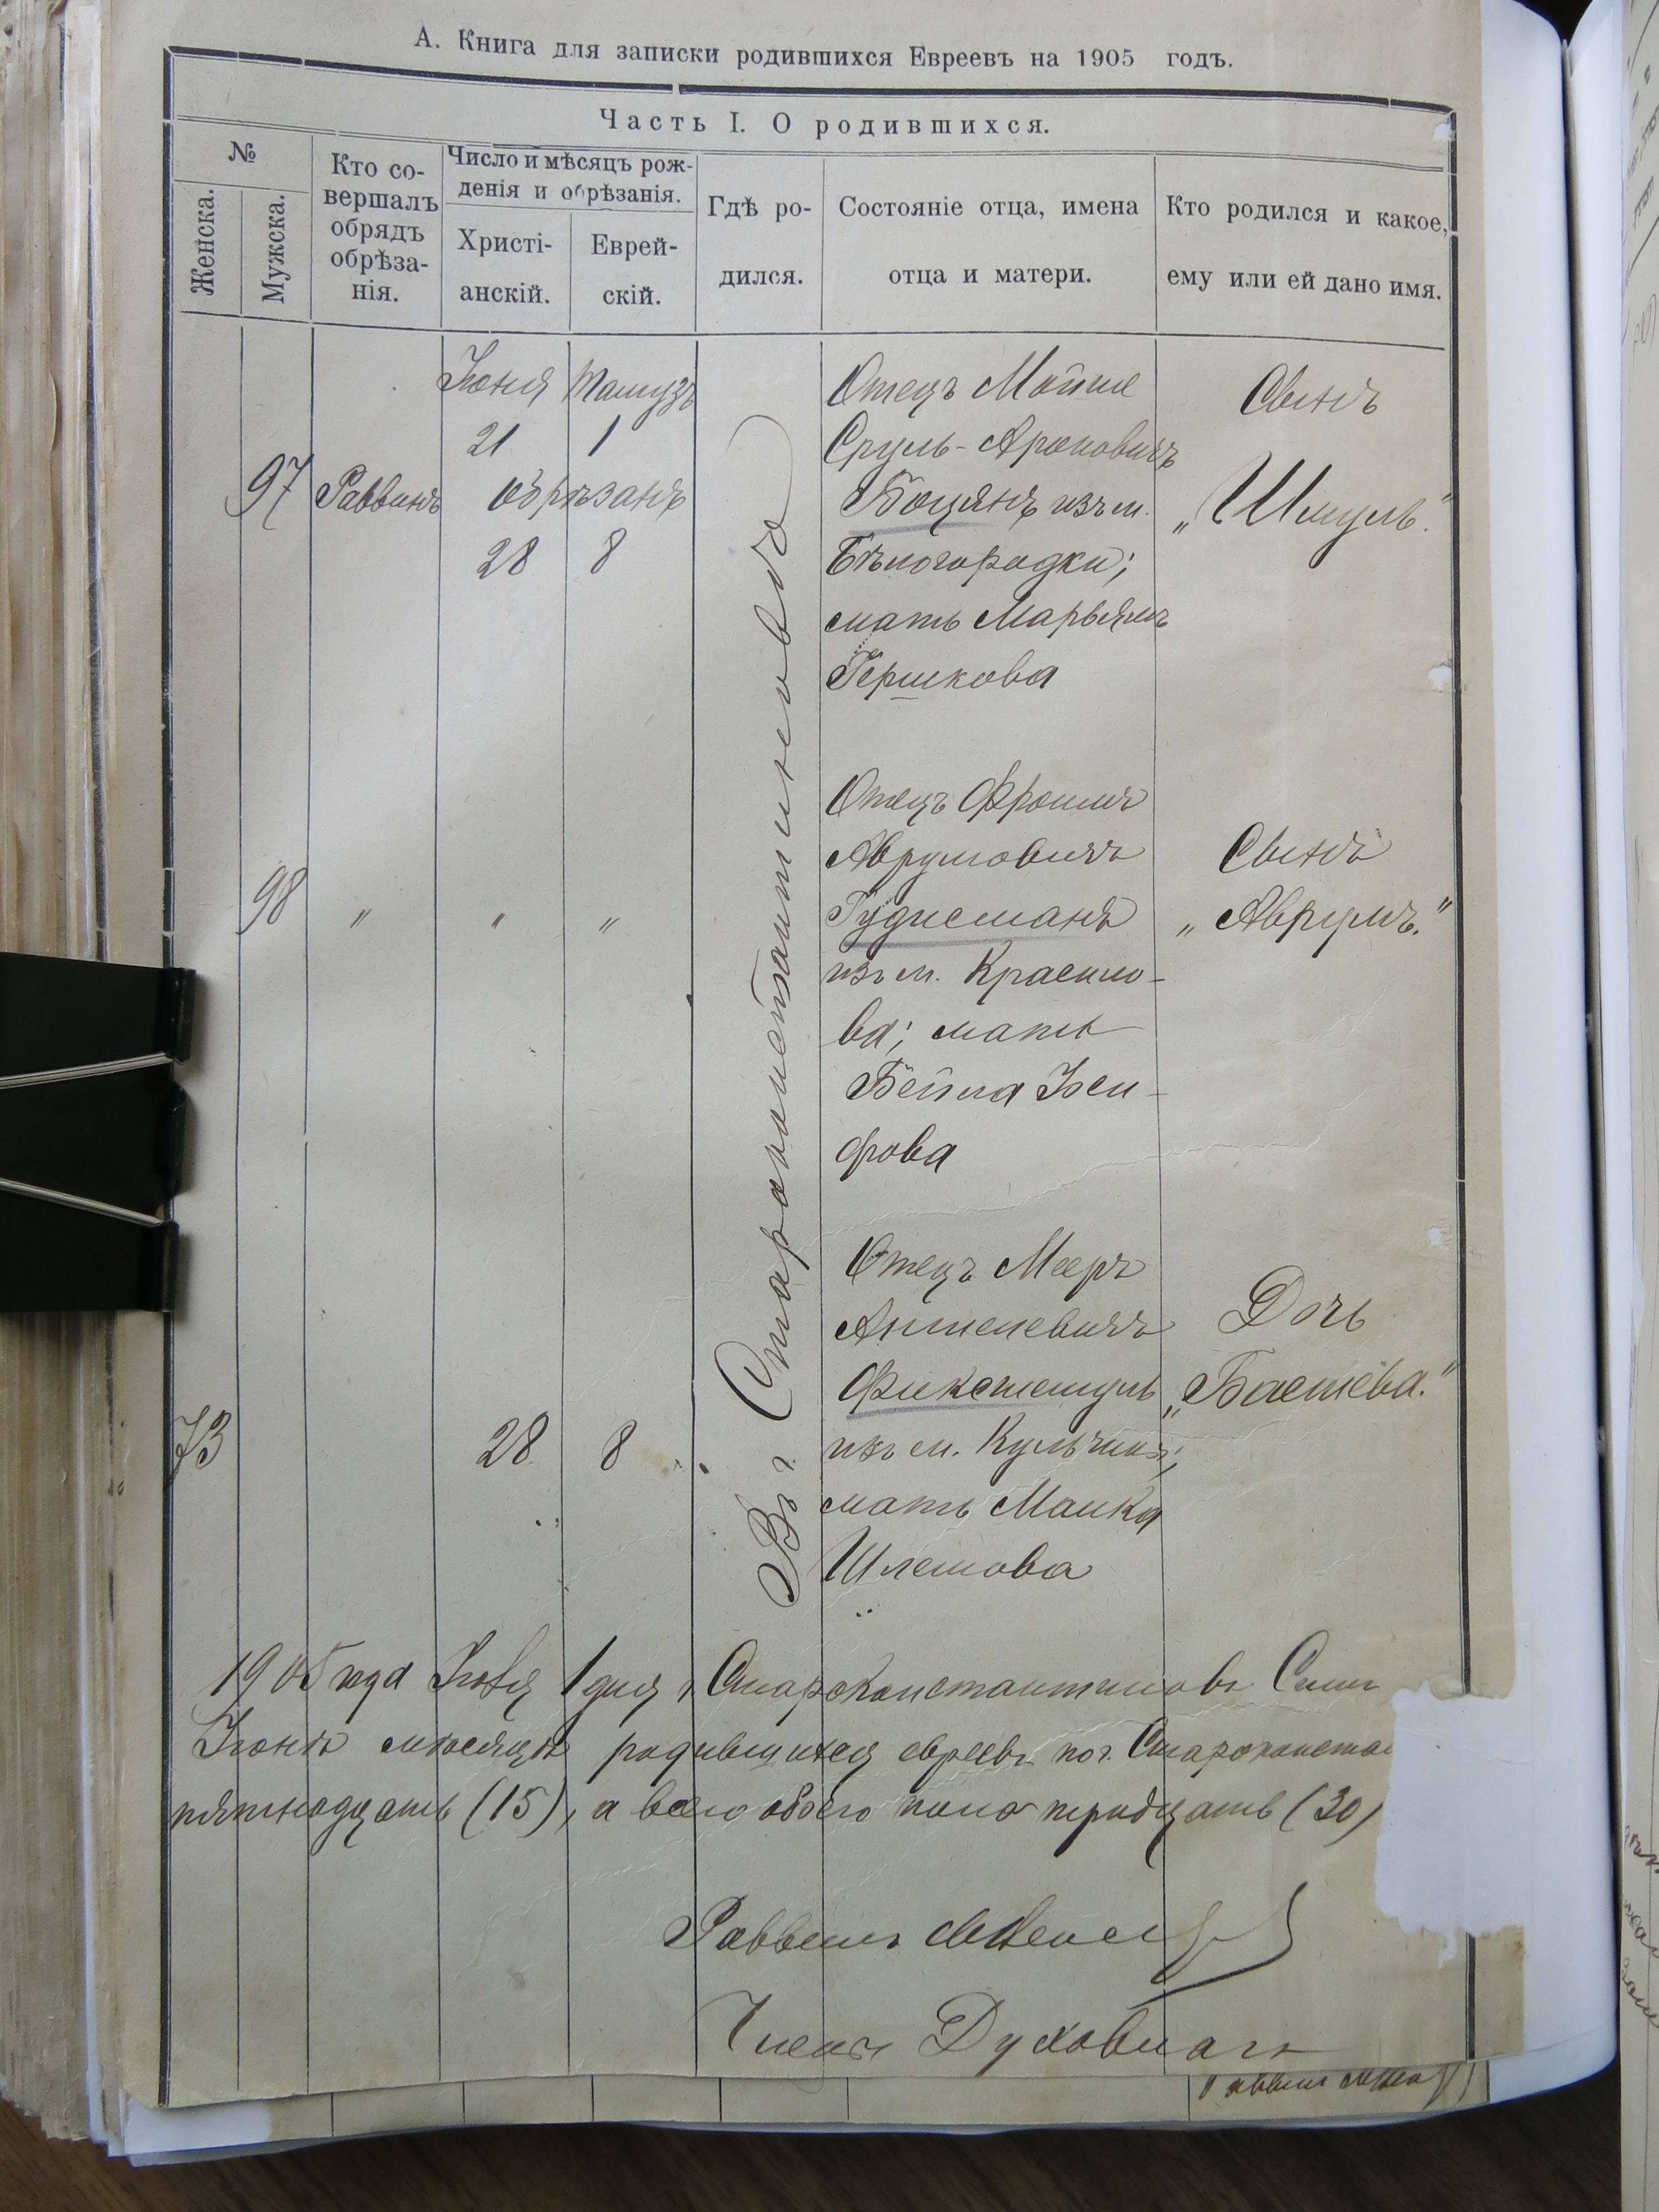 А. Книга для записки родившихся Евреевъ на 1905 годъ.
Часть I. О родившихся.
№
Женска.
Мужска.
Кто со-
вершалъ
обрядъ
обрѣза-
нія.
Число и мѣсяцъ рож-
денія и обрѣзанія.
Христі-
анскій.
Еврей-
скій.
Гдѣ ро-
дился.
Состояніе отца, имена
отца и матери.
Кто родился и какое,
ему или ей дано имя.
97
Раввинъ
Іюня Тамузъ
21 1
обрѣзанъ
28 8
Въ г. Староконстантиновѣ
Отецъ Мойше
Сруль-Ароновичъ
Боцянъ изъ м.
Бѣлогородки;
мать Марьямъ
Гершкова
Сынъ
„Шмуль."
98
"
"
"
Отецъ Фроимъ
Аврумовичъ
Гудисманъ
изъ м. Красило-
ва; мать
Бейла Іоси-
фова
Сынъ
„Аврумъ."
73
28 8
Отецъ Мееръ
Аншелевичъ
Фикстемуль
изъ м. Кульчинъ;
мать Малка
Шлемова
Дочь
„Басшева."
1905 года Іюля 1 дня Староконстантиновъ
Іюнѣ мѣсяцѣ родившихся евреевъ по г. Староконста
пятнадцать (15), а всего обоего пола тридцать (30)
Раввинъ
Членъ Духовнаго
Раввинъ